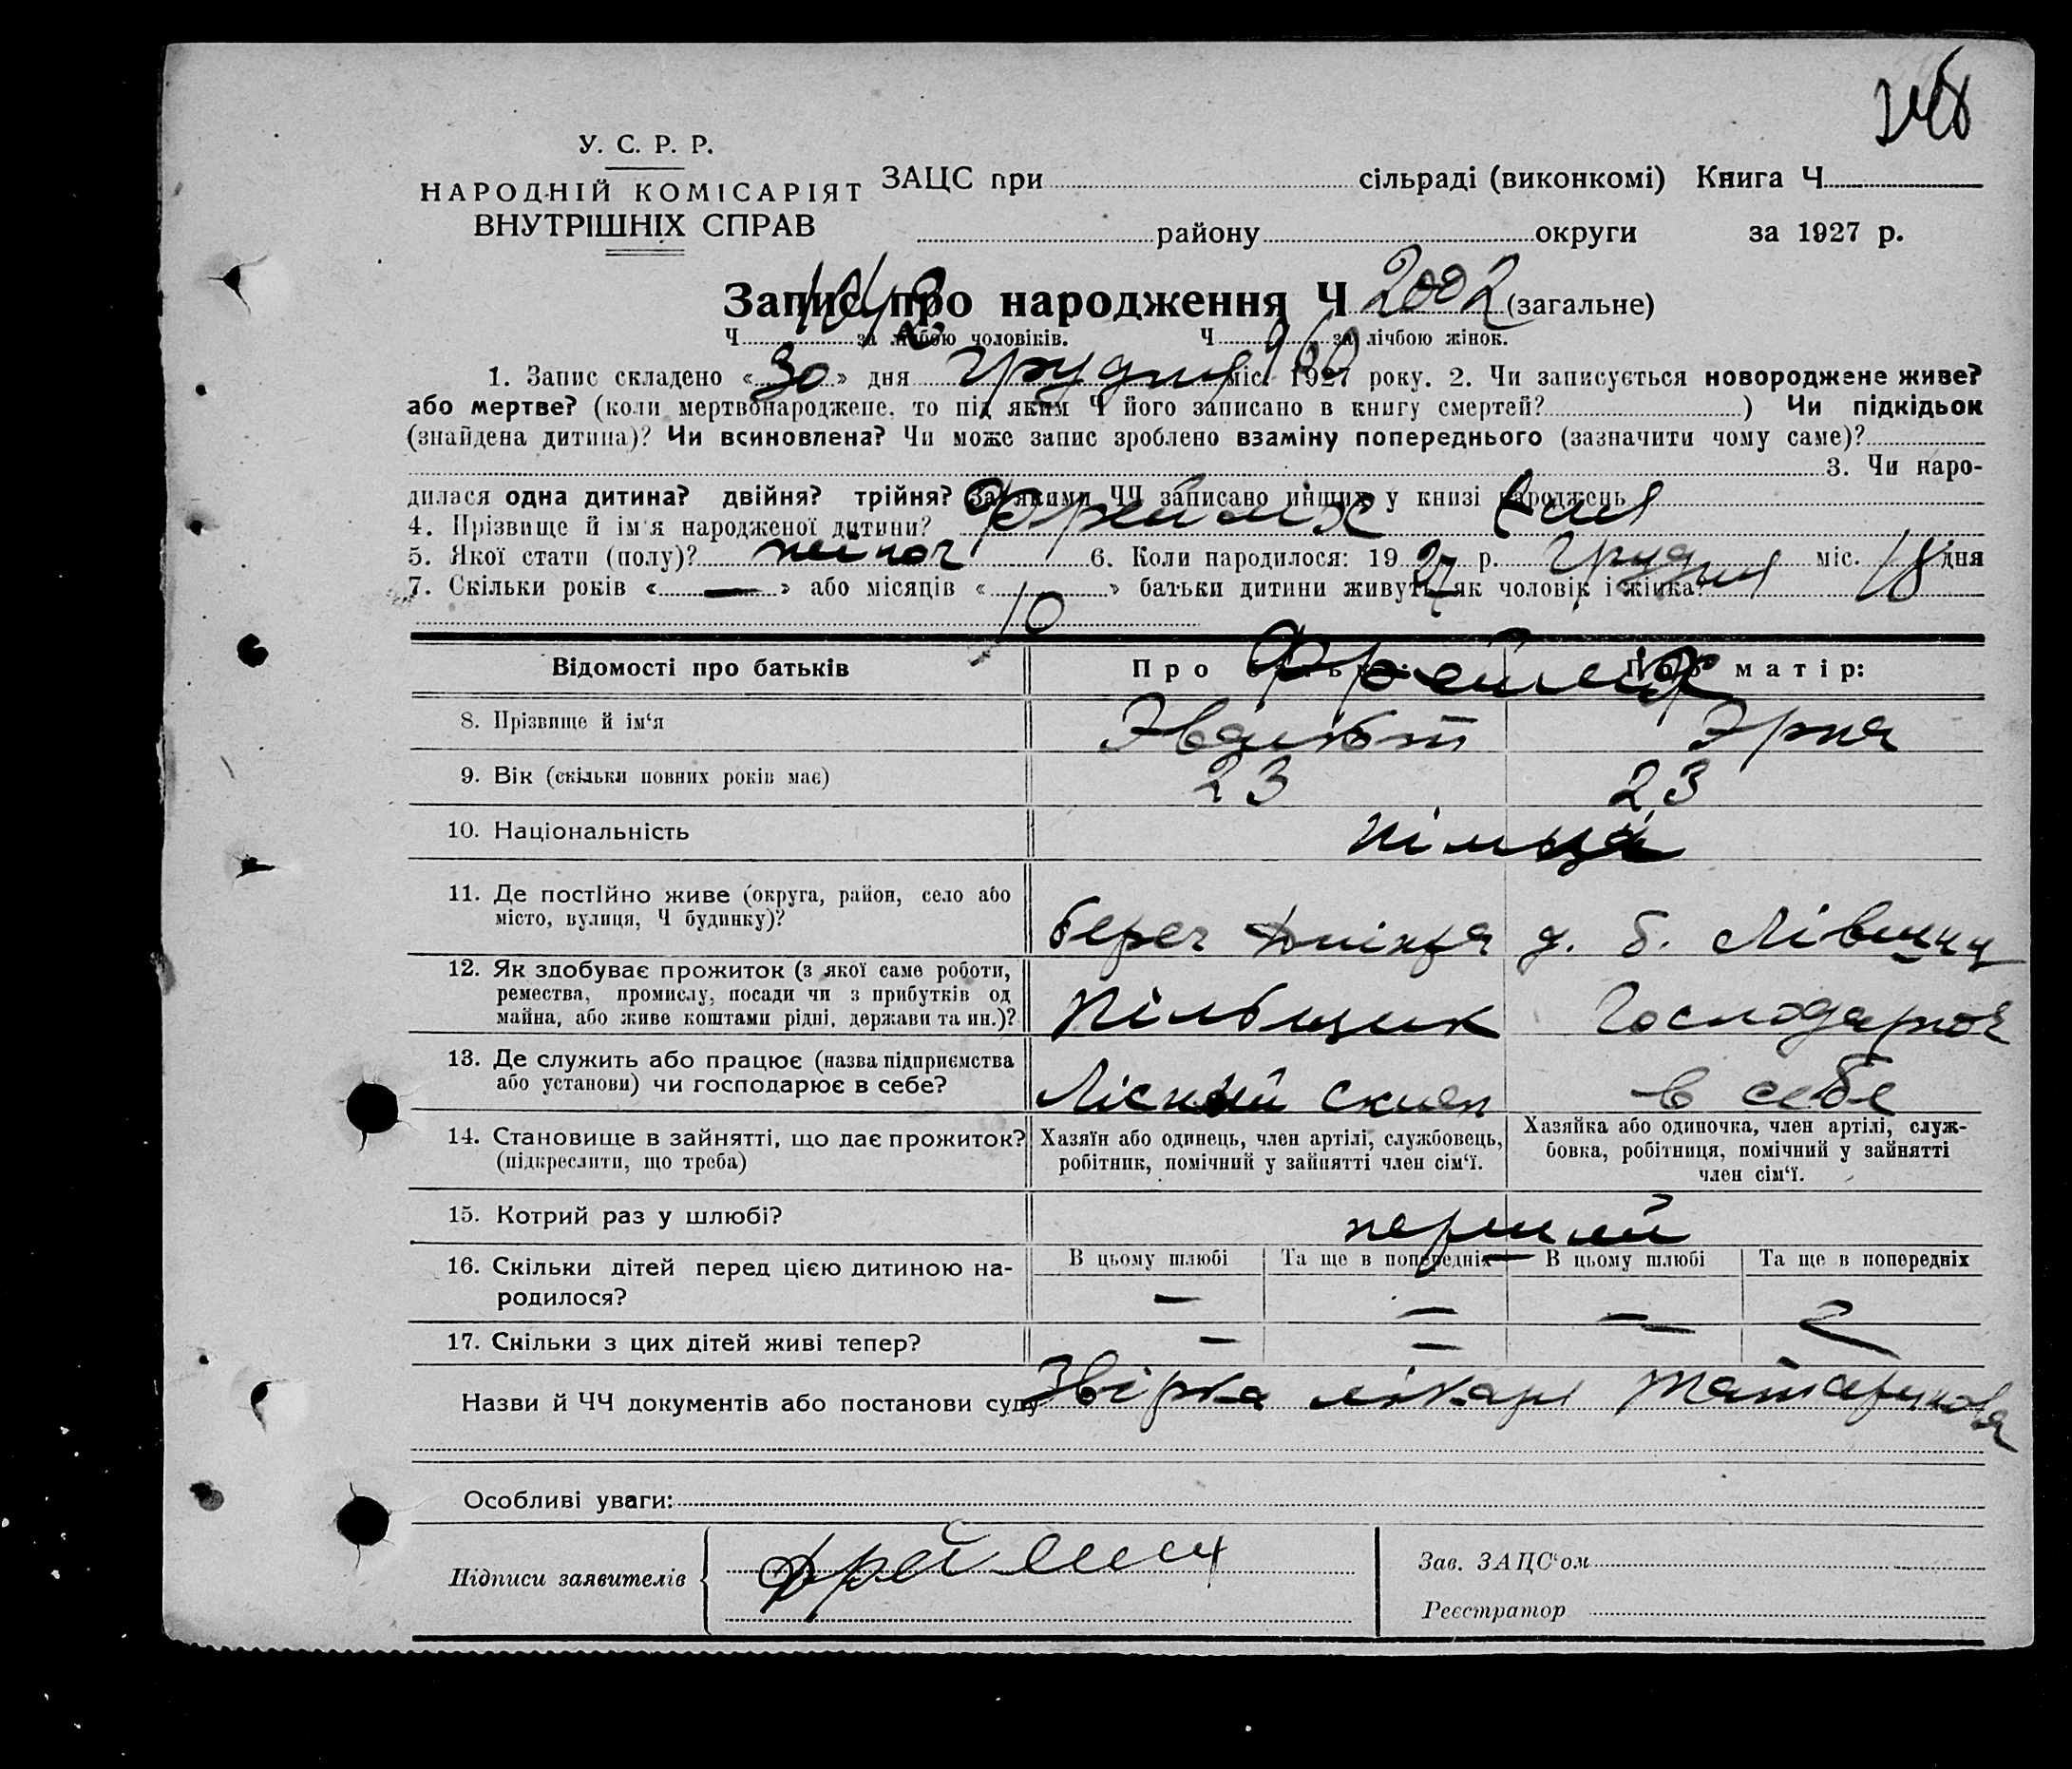 У. С. Р. Р.
НАРОДНІЙ КОМІСАРІЯТ
ВНУТРІШНІХ СПРАВ
ЗАЦС при сільраді (виконкомі) Книга Ч
району округи за 1927 р.
Запис про народження Ч 2002 (загальне)
Ч за лічбою чоловіків. Ч 960 за лічбою жінок.
1. Запис складено «30» дня грудня міс. 1927 року. 2. Чи записується новороджене живе?
або мертве? (коли мертвонароджене, то під яким Ч його записано в книгу смертей? ) Чи підкідьок
(знайдена дитина)? Чи всиновлена? Чи може запис зроблено взаміну попереднього (зазначити чому саме)?
3. Чи наро-
дилася одна дитина? двійня? трійня? За якими ЧЧ записано инших у книзі народжень
4. Прізвище й ім'я народженої дитини?
5. Якої стати (полу)? жіноч 6. Коли народилося: 1927 р. грудня міс. 18 дня
7. Скільки років «—» або місяців «10» батьки дитини живуть як чоловік і жінка?
Відомості про батьків
Про батька: Про матір:
8. Прізвище й ім'я
Эвальт Эрна
9. Вік (скільки повних років має) 23 23
10. Національність німці
11. Де постійно живе (округа, район, село або
місто, вулиця, Ч будинку)?
берег Дніпра д. б.
12. Як здобуває прожиток (з якої саме роботи,
ремества, промислу, посади чи з прибутків од
майна, або живе коштами рідні, держави та ин.)?
Пільщик Господарює
13. Де служить або працює (назва підприємства
або установи) чи господарює в себе?
Лісний склеп в себе
14. Становище в зайнятті, що дає прожиток?
(підкреслити, що треба)
Хазяїн або одинець, член артілі, службовець,
робітник, помічний у зайнятті член сім'ї.
Хазяйка або одиночка, член артілі, служ-
бовка, робітниця, помічний у зайнятті
член сім'ї.
15. Котрий раз у шлюбі? перший
16. Скільки дітей перед цією дитиною на-
родилося?
В цьому шлюбі Та ще в попередніх В цьому шлюбі Та ще в попередніх
— — — —
17. Скільки з цих дітей живі тепер? — — — —
Назви й ЧЧ документів або постанови суду лікаря
Особливі уваги:
Підписи заявителів
Зав. ЗАЦС'ом
Реєстратор